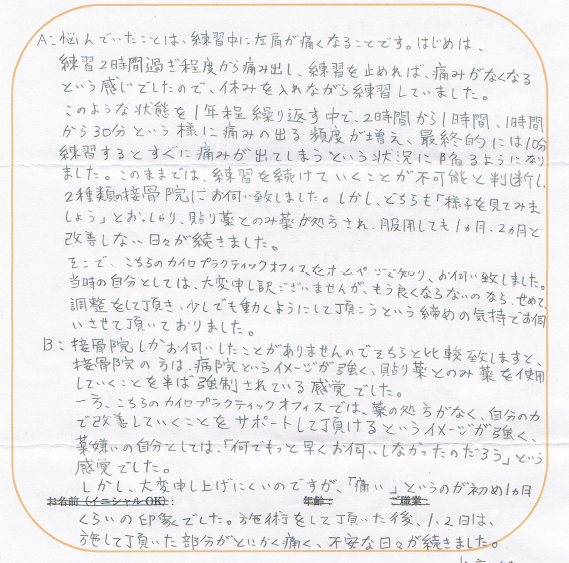 A：悩んでいたことは、練習中に左肩が痛くなることです。はじめは、
練習2時間過ぎ程度から痛み出し、練習を止めれば、痛みがなくなる
という感じでしたので、休みを入れながら練習していました。
このような状態を1年程繰り返す中で、2時間から1時間、1時間
から30分という様に痛みの出る頻度が増え、最終的には10分
練習するとすぐに痛みが出てしまうという状況に陥るようになり
ました。このままでは、練習を続けていくことが不可能と判断し、
2種類の接骨院にお伺い致しました。しかし、どちらも「様子を見てみま
しょう」とおっしゃり、貼り薬とのみ薬が処方され、服用しても1ヵ月、2ヵ月と
改善しない日々が続きました。
そこで、こちらのカイロプラクティックオフィスをホームページで知り、お伺い致しました。
当時の自分としては、大変申し訳ございませんが、もう良くならないのなら、せめて、
調整をして頂き、少しでも動くようにして頂こうという締めの気持でお伺
いさせて頂いておりました。
B：接骨院しかお伺いしたことがありませんのでそちらと比較致しますと、
接骨院の方は、病院というイメージが強く、貼り薬とのみ薬を使用
していくことを半ば強制されている感覚でした。
一方、こちらのカイロプラクティックオフィスでは、薬の処方がなく、自分の力
で改善していくことをサポートして頂けるというイメージが強く、
薬嫌いの自分としては、「何でもっと早くお伺いしなかったのだろう」という
感覚でした。
しかし、大変申し上げにくいのですが、「痛い」というのが初め1ヵ月
お名前（イニシャルOK）： 年齢： ご職業：
くらいの印象でした。施術をして頂いた後、1、2日は、
施して頂いた部分がとにかく痛く、不安な日々が続きました。